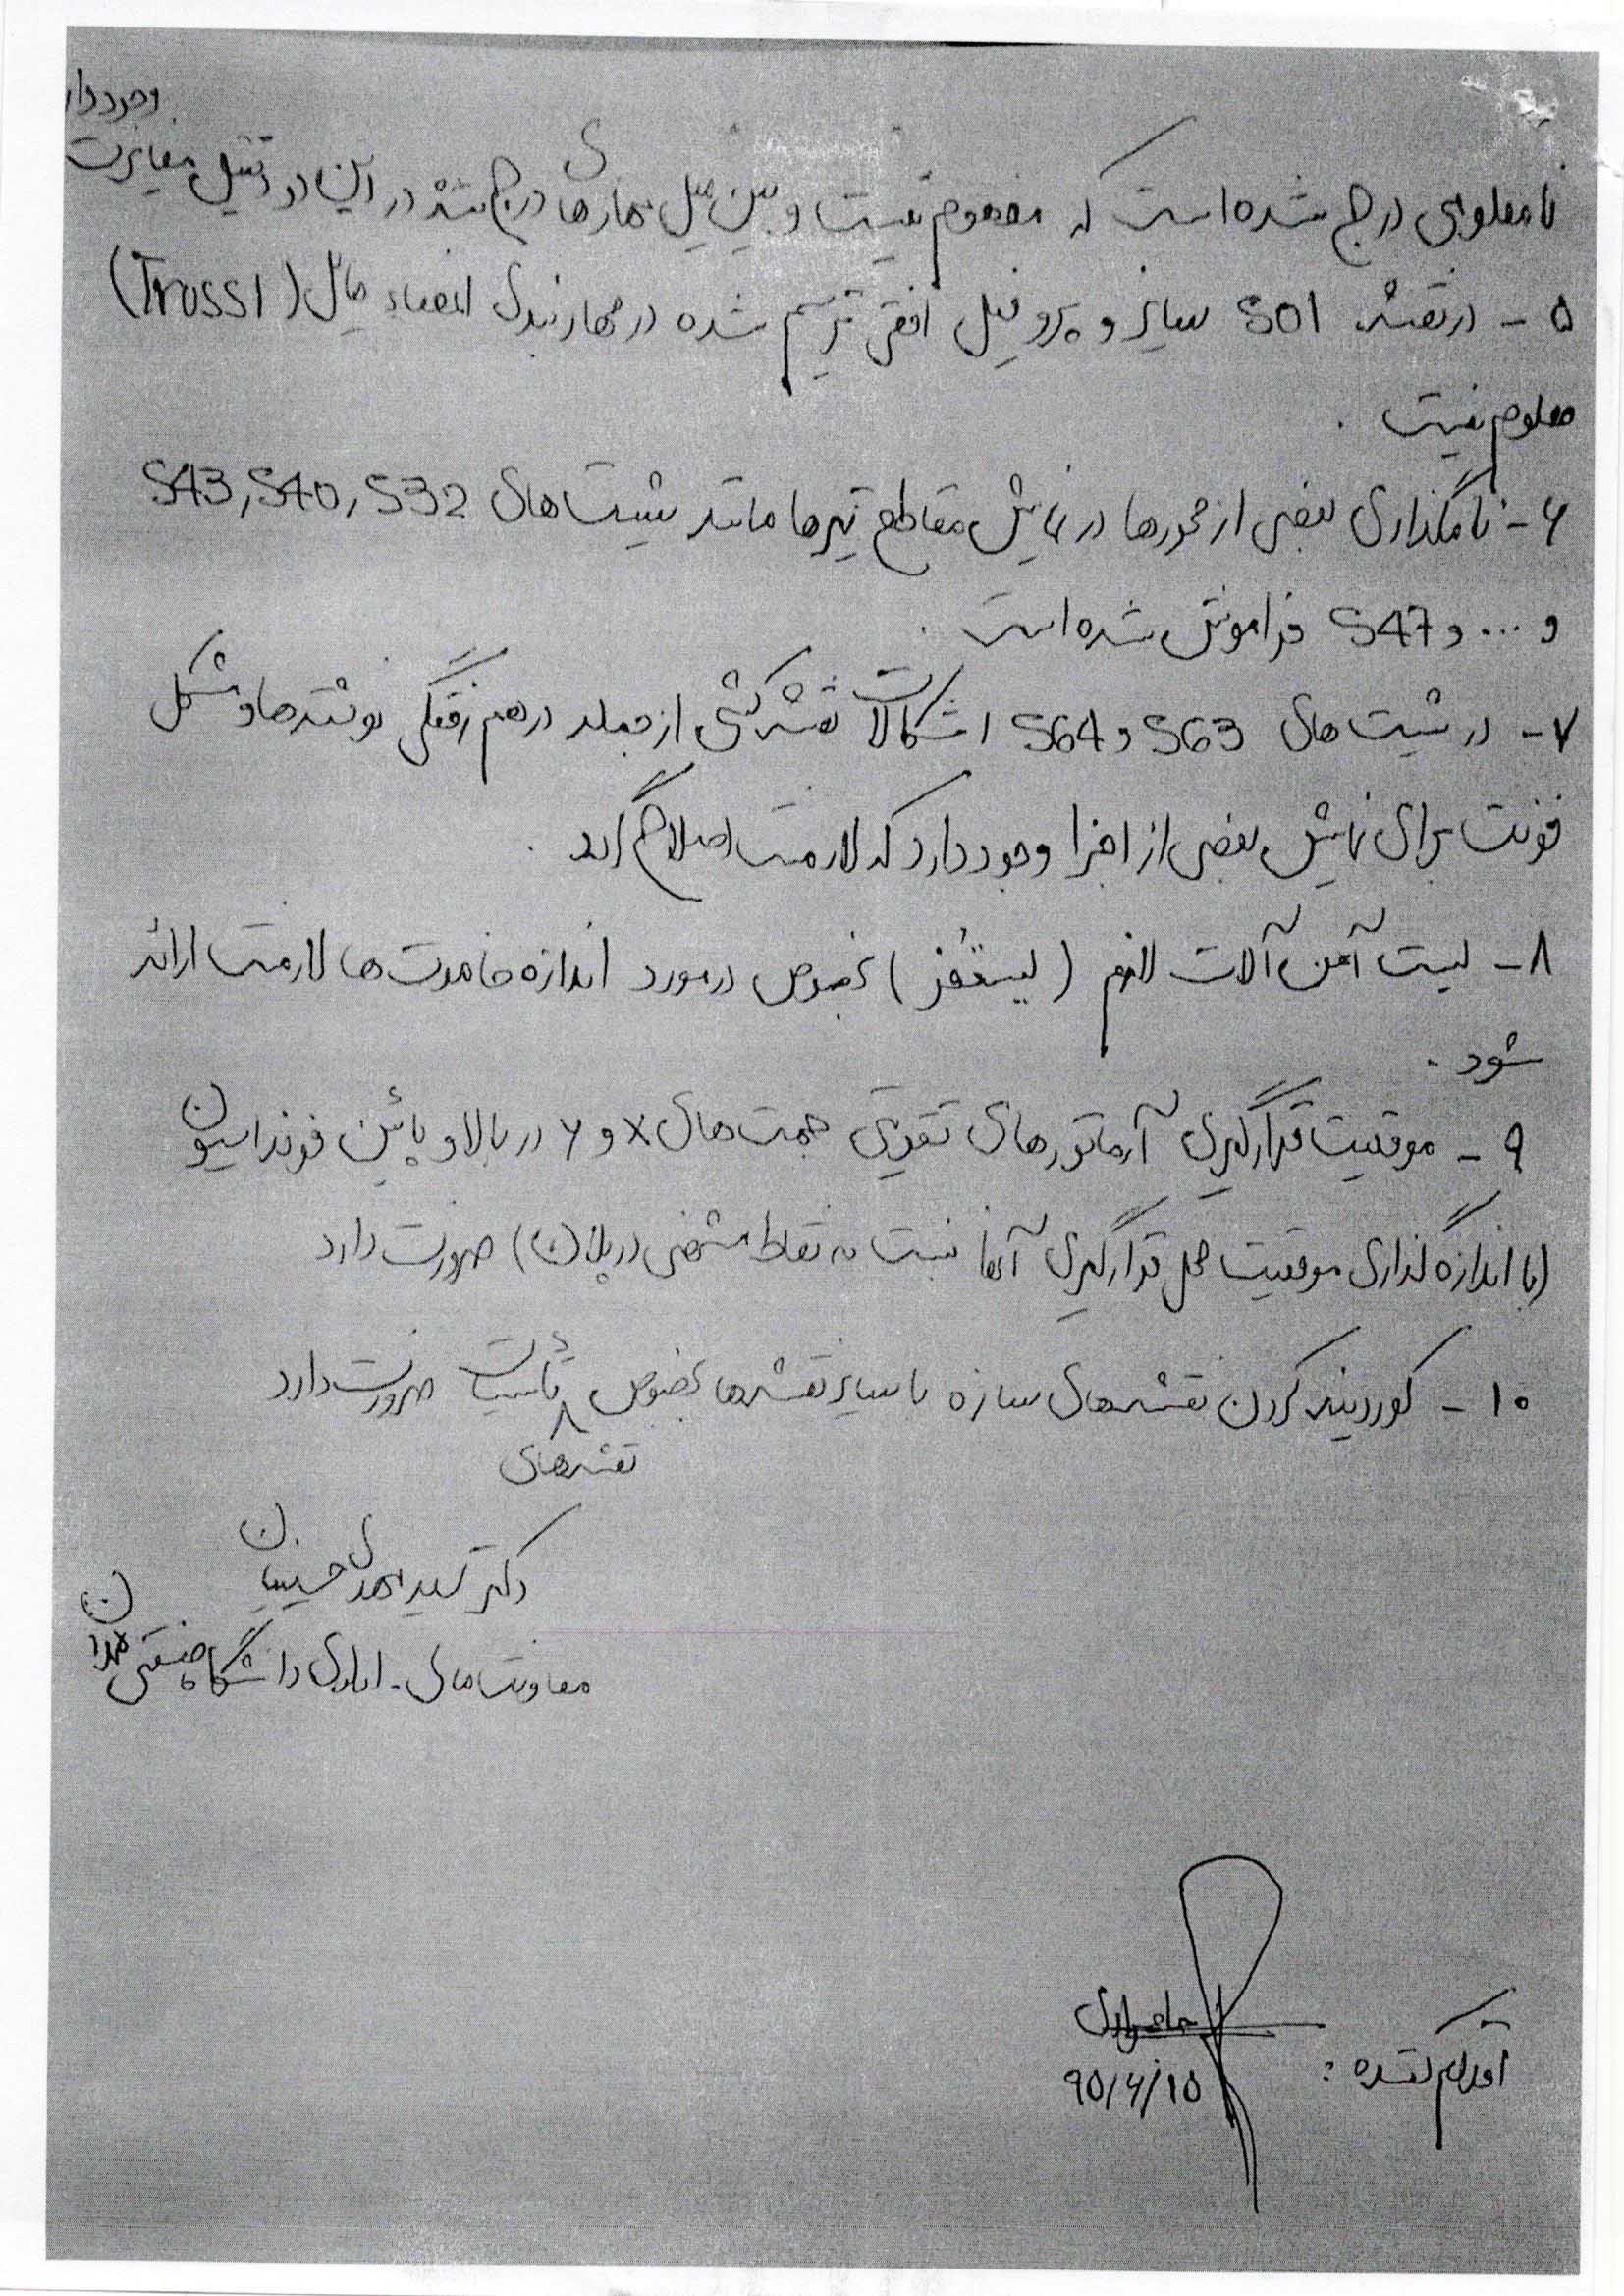 وجود دارد
نامعلومی درج شده است که مفهوم نیست و بین میل مهارهای درج شده در این دو دتیل مغایرت
۵ - در نقشه S01 سایز و پروفیل افقی ترسیم شده در مهاربندی اعضاء مایل (Truss1)
معلوم نیست.
۶ - نامگذاری بعضی از محورها در نمایش مقاطع تیرها مانند شیت های S32, S40, S43
و ... و S47 فراموش شده است.
۷ - در شیت های S63 و S64 اشکالات نقشه کشی از جمله در هم رفتگی نوشته ها و مشکل
فونت برای نمایش بعضی از اجزا وجود دارد که لازمست اصلاح گردد.
۸ - لیست آهن آلات لازم (لیستوفر) بخصوص در مورد اندازه خاموت ها لازمست ارائه
شود.
۹ - موقعیت قرارگیری آرماتورهای تقویتی جهت های x و y در بالا و پائین فونداسیون
(با اندازه گذاری موقعیت محل قرارگیری آنها نسبت به نقاط مشخص در پلان) ضرورت دارد
۱۰ - کوردینه کردن نقشه های سازه با سایر نقشه ها بخصوص نقشه های تأسیسات ضرورت دارد
دکتر سید مهدی حسینیان
معاونت مالی - اداری دانشگاه صنعتی همدان
اقدام کننده:
۹۰/۶/۱۵